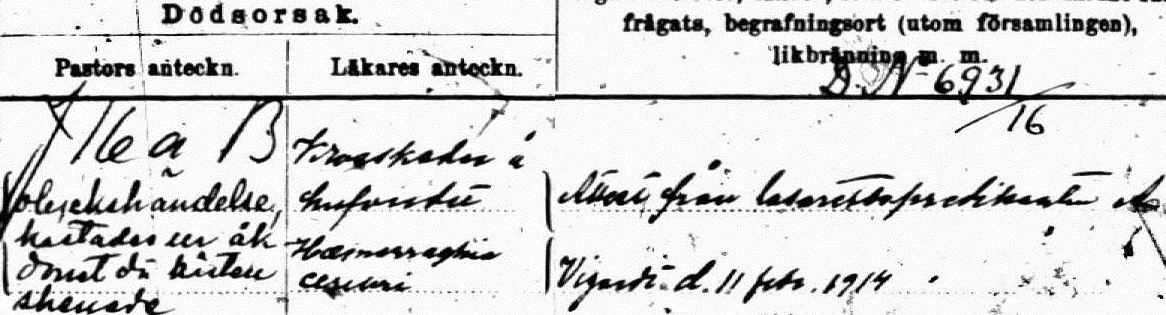 Dödsorsak.
frågats, begrafningsort (utom församlingen),
likbränning m. m.
Pastors anteckn. Läkares anteckn.
D. N 6931/16
116 a B
Krosskador å
olyckshändelse, hufvudet Attest från lasarettspredikanten
kastades ur åk Hæmorraghia
donet då hästen cerebri Vigardt d. 11 febr. 1914
skenade